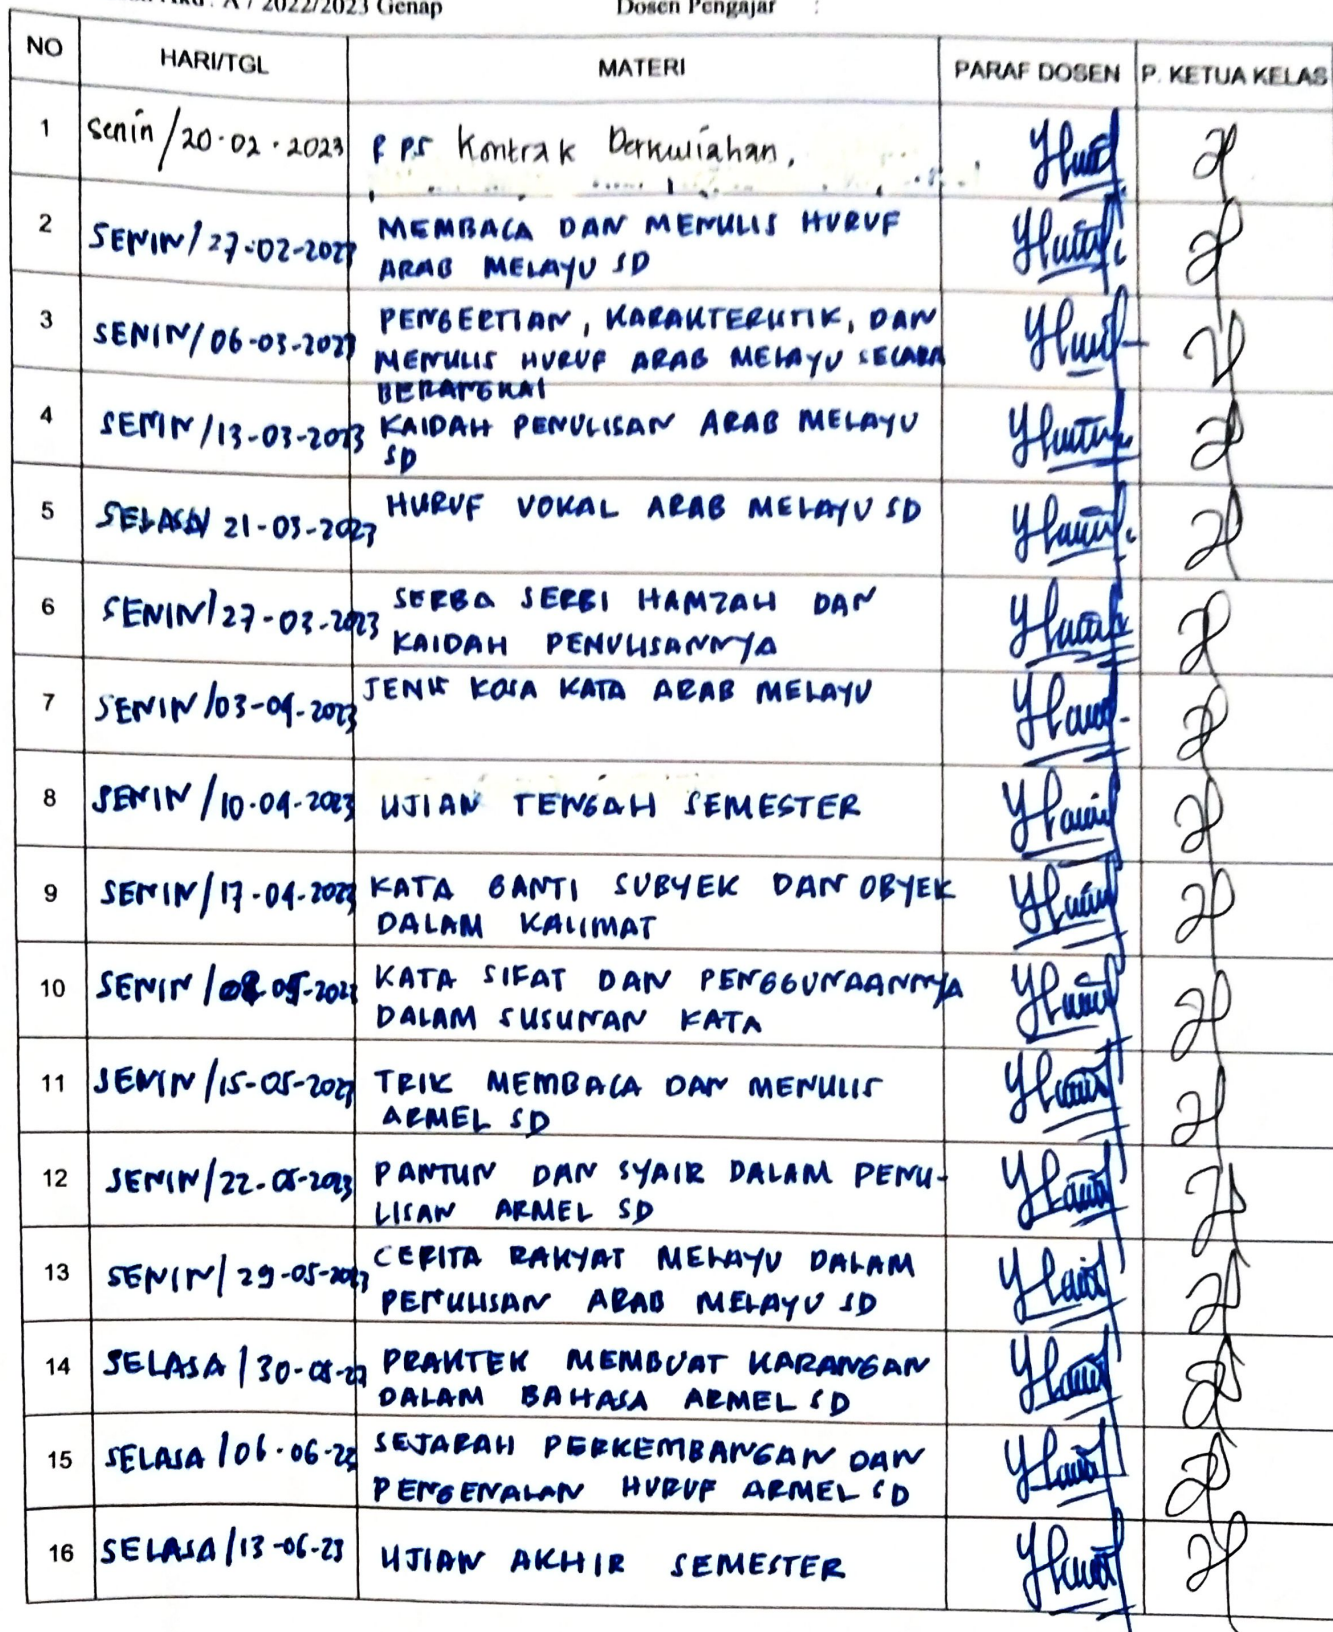 A / 2022/2023 Genap Dosen Pengajar :
NO HARI/TGL MATERI PARAF DOSEN P. KETUA KELAS
1 Senin / 20-02-2023 RPS Kontrak Perkuliahan.
2 SENIN / 27-02-2023 MEMBACA DAN MENULIS HURUF
ARAB MELAYU SD
3 SENIN / 06-03-2023 PENGERTIAN, KARAKTERISTIK, DAN
MENULIS HURUF ARAB MELAYU SECARA
BERANGKAI
4 SENIN / 13-03-2023 KAIDAH PENULISAN ARAB MELAYU
SD
5 SELASA / 21-03-2023 HURUF VOKAL ARAB MELAYU SD
6 SENIN / 27-03-2023 SERBA SERBI HAMZAH DAN
KAIDAH PENULISANNYA
7 SENIN / 03-04-2023 JENIS KOSA KATA ARAB MELAYU
8 SENIN / 10-04-2023 UJIAN TENGAH SEMESTER
9 SENIN / 17-04-2023 KATA GANTI SUBYEK DAN OBYEK
DALAM KALIMAT
10 SENIN / 08-05-2023 KATA SIFAT DAN PENGGUNAANNYA
DALAM SUSUNAN KATA
11 SENIN / 15-05-2023 TRIK MEMBACA DAN MENULIS
ARMEL SD
12 SENIN / 22-05-2023 PANTUN DAN SYAIR DALAM PENU-
LISAN ARMEL SD
13 SENIN / 29-05-2023 CERITA RAKYAT MELAYU DALAM
PENULISAN ARAB MELAYU SD
14 SELASA / 30-05-23 PRAKTEK MEMBUAT KARANGAN
DALAM BAHASA ARMEL SD
15 SELASA / 06-06-23 SEJARAH PERKEMBANGAN DAN
PENGENALAN HURUF ARMEL SD
16 SELASA / 13-06-23 UJIAN AKHIR SEMESTER